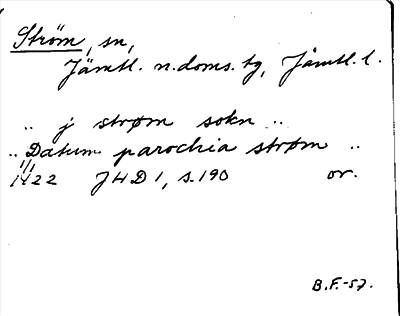 Ström, sn,
Jämtl. n. doms. tg, Jämtl. l.
.. j strøm sokn ..
.. Datum parochia strøm ..
1/1
1422 JHD 1, s. 190 or.
B.F.-57.